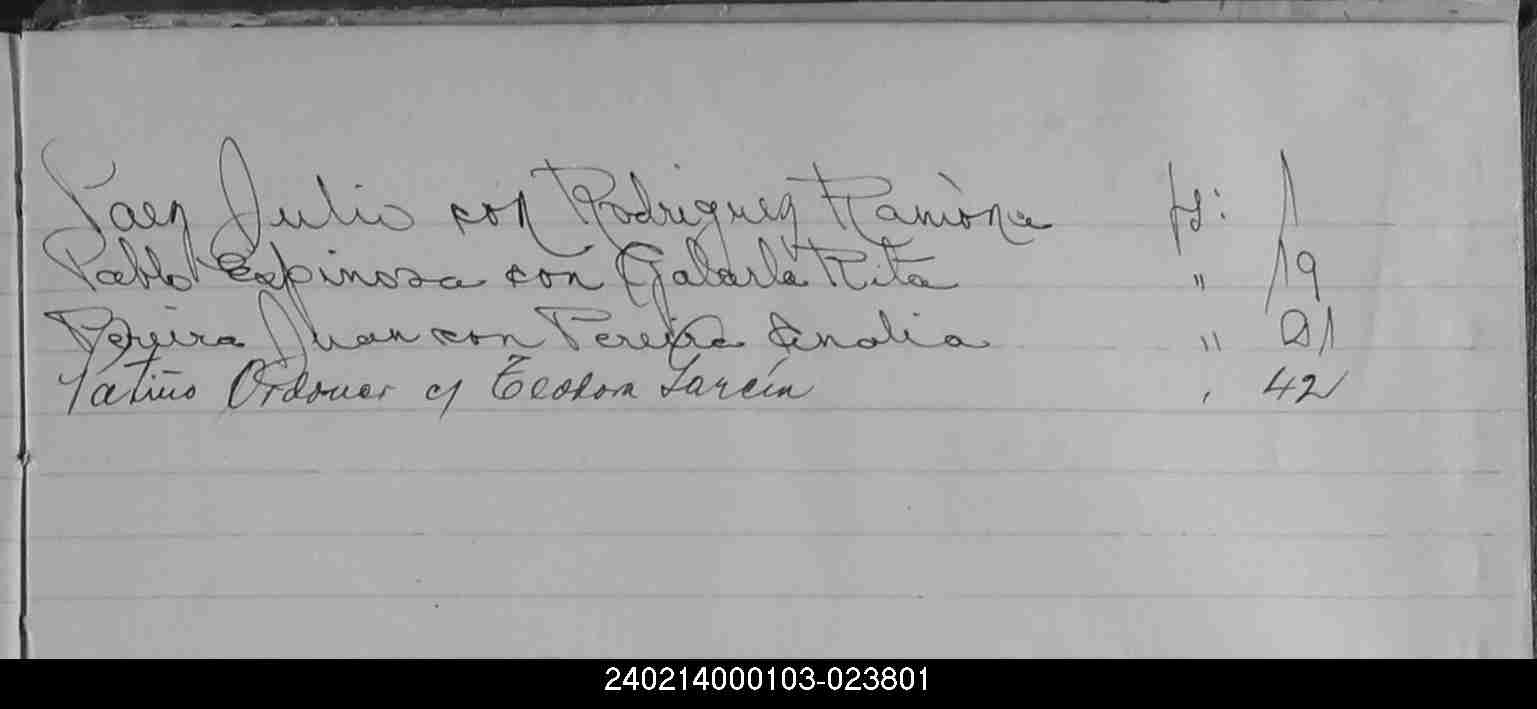 Paez Julio con Rodriguez Ramòna fs: 1
Pablo Espinosa con Galarla Rita " 19
Pereira Juan con Pereira Analia " 21
Patiño Ordoner c/ Teodora Garcia , 42
240214000103-023801